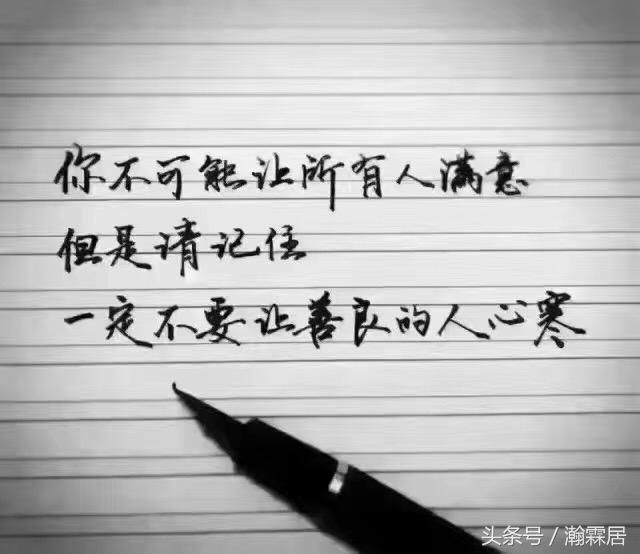 你不可能让所有人满意
但是请记住
一定不要让善良的人心寒
头条号 / 瀚霖居